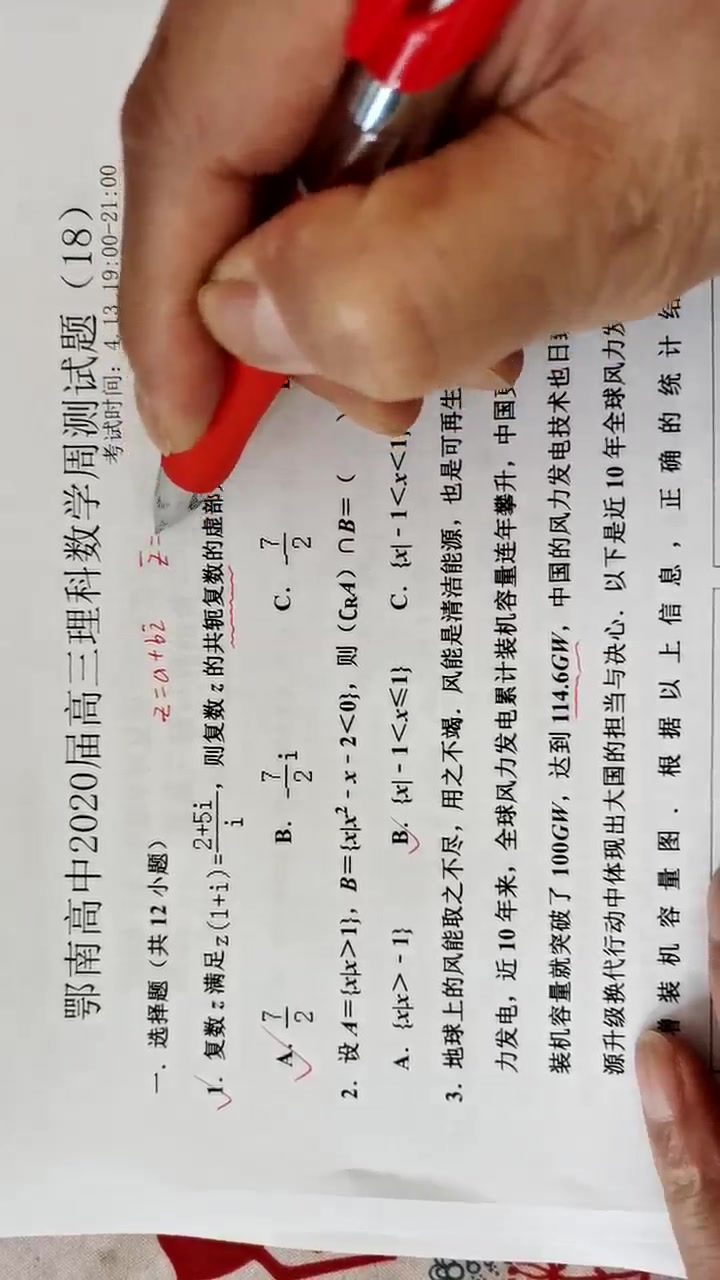 鄂南高中2020届高三理科数学周测试题（18）
考试时间：4.13 19:00-21:00
一．选择题（共 12 小题）
z=a+bi z̄=
1. 复数 z 满足 z(1+i)=\frac{2+5i}{i}，则复数 z 的共轭复数的虚部
A. \frac{7}{2} B. -\frac{7}{2}i C. -\frac{7}{2}
2. 设 A={x|x>1}，B={x|x²-x-2<0}，则（C_RA）∩B=（ ）
A. {x|x>-1} B. {x|-1<x≤1} C. {x|-1<x<1
3. 地球上的风能取之不尽，用之不竭．风能是清洁能源，也是可再生
力发电，近 10 年来，全球风力发电累计装机容量连年攀升，中国
装机容量就突破了 100GW，达到 114.6GW，中国的风力发电技术也日
源升级换代行动中体现出大国的担当与决心．以下是近 10 年全球风力发
装机容量图．根据以上信息，正确的统计结